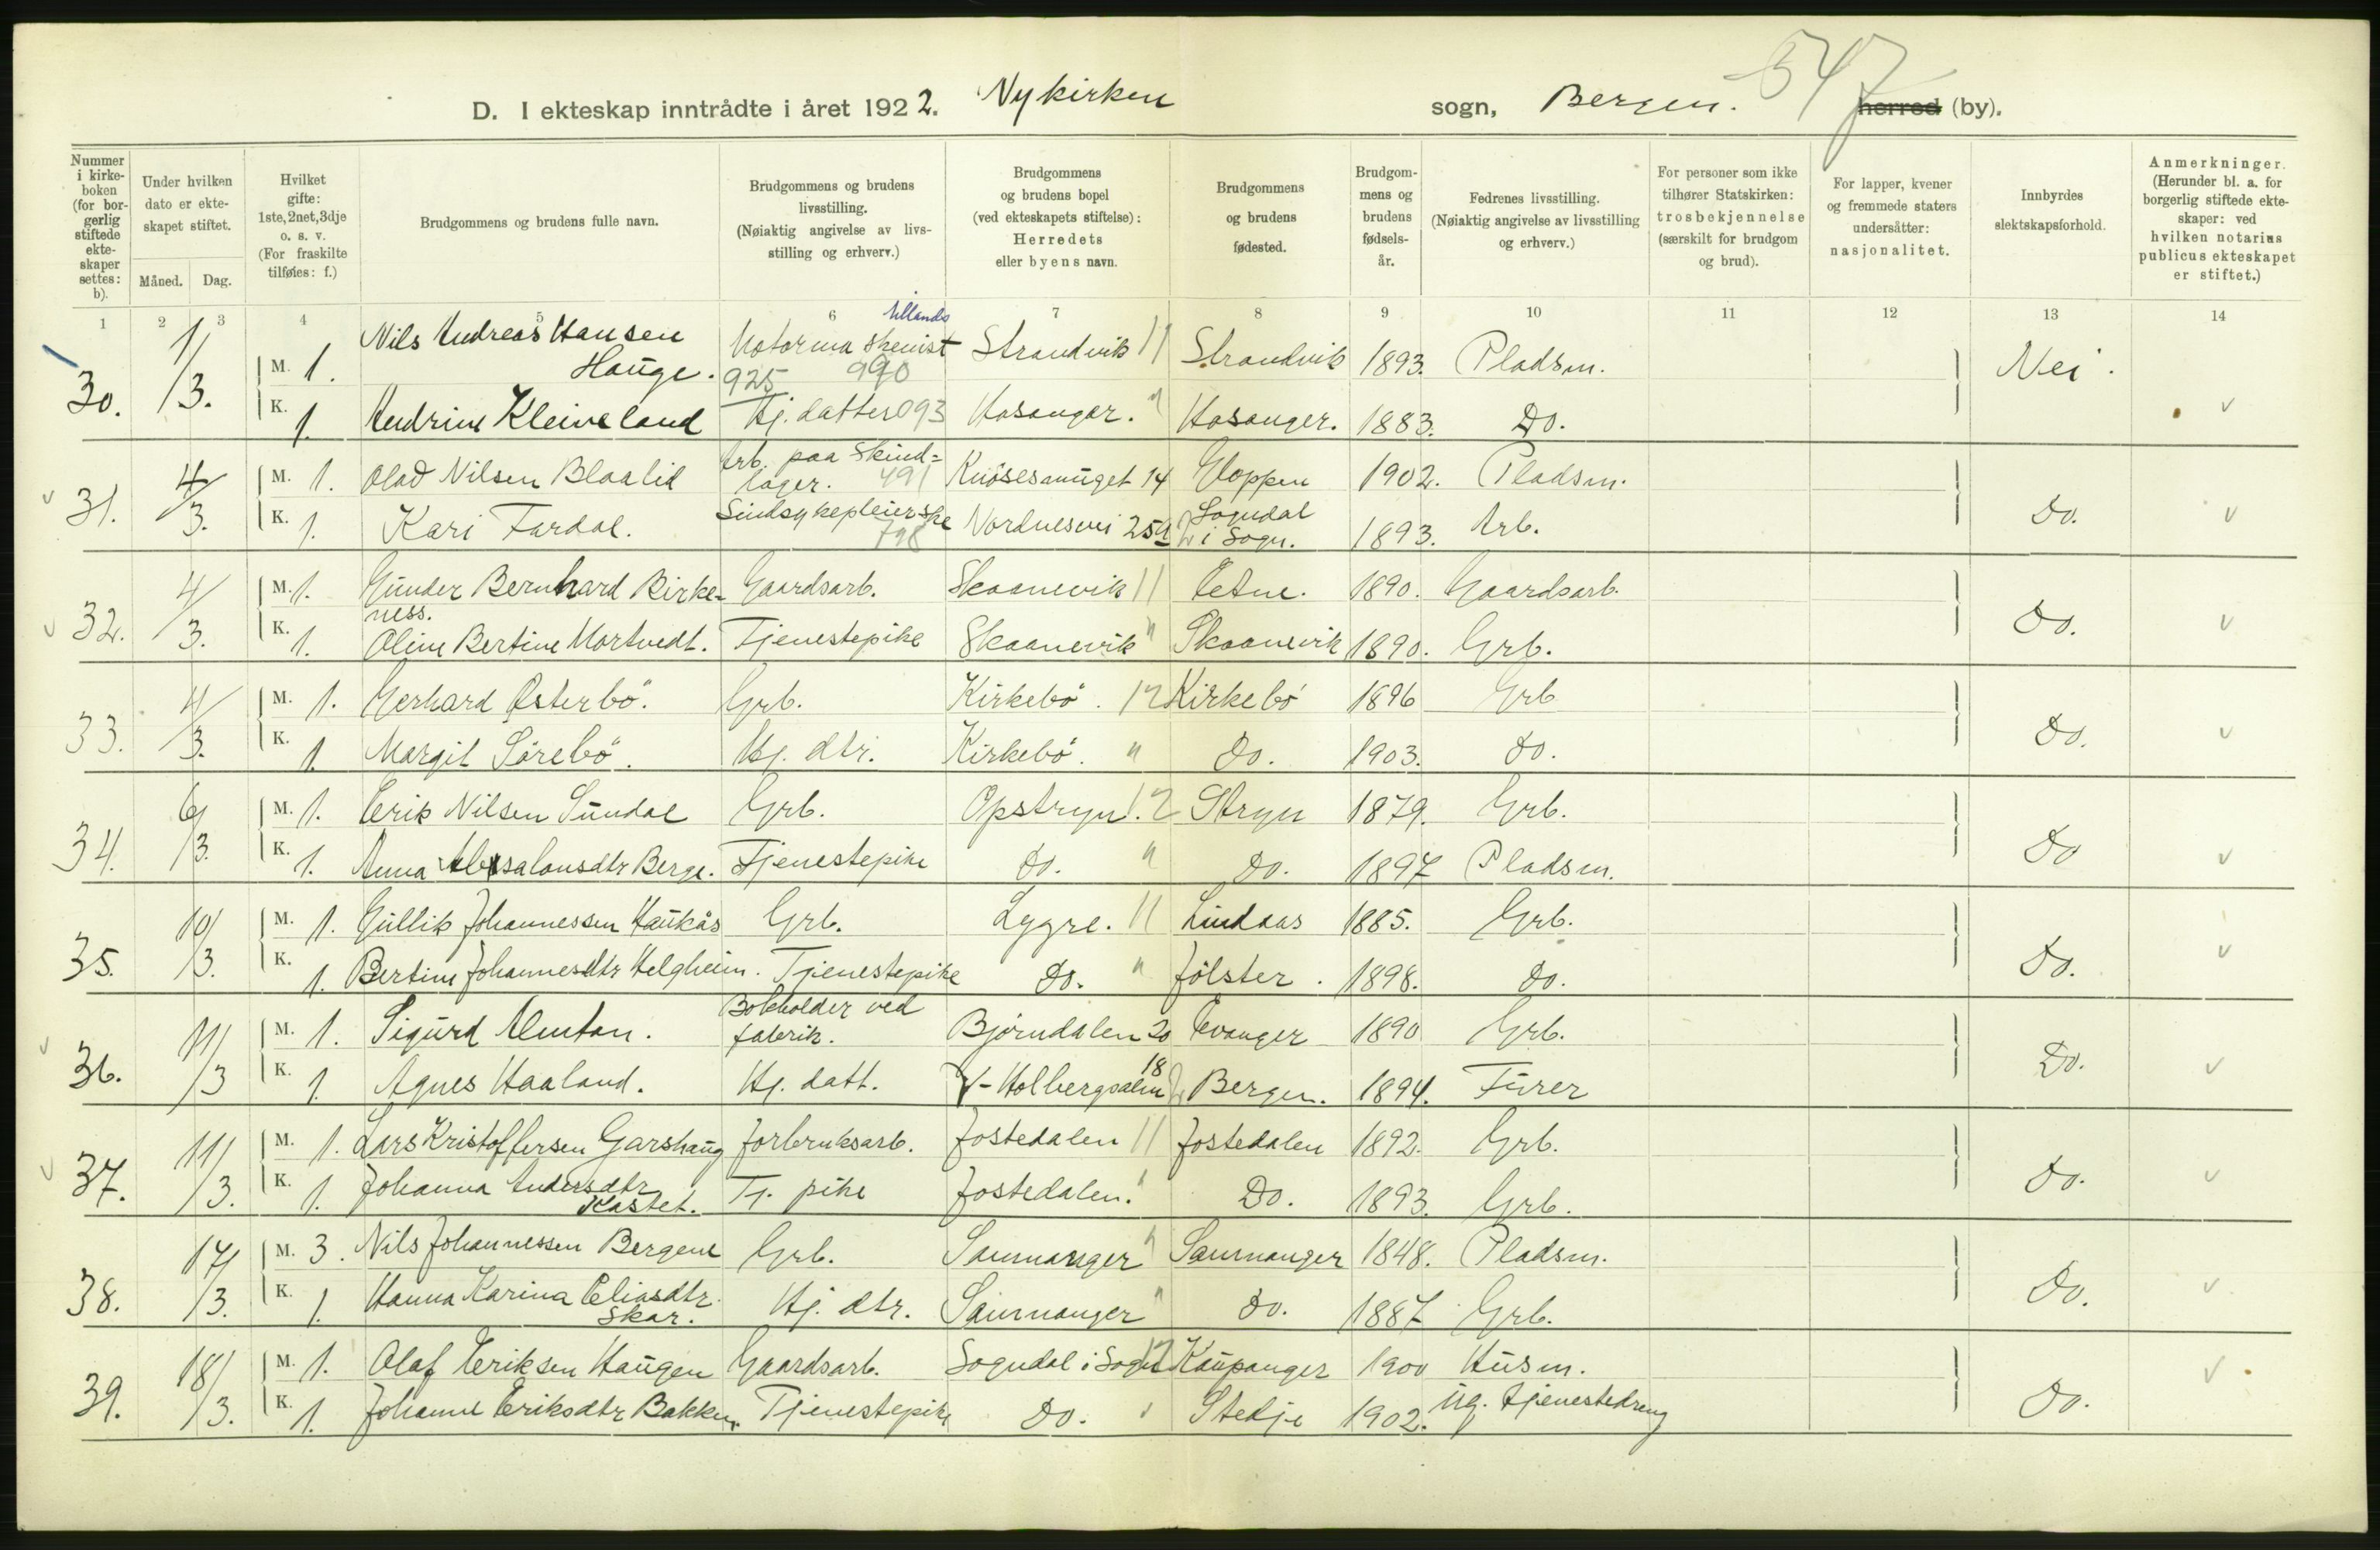 547
D. I ekteskap inntrådte i året 1922. Nykirken sogn, Bergen. herred (by).
Nummer i kirke-boken (for bor-gerlig stiftede ekte-skaper settes: b).
Under hvilken dato er ekte-skapet stiftet.
Måned. Dag.
Hvilket gifte: 1ste, 2net, 3dje o. s. v. (For fraskilte tilføies: f.)
Brudgommens og brudens fulle navn.
Brudgommens og brudens livsstilling. (Nøiaktig angivelse av livs-stilling og erhverv.)
Brudgommens og brudens bopel (ved ekteskapets stiftelse): Herredets eller byens navn.
Brudgommens og brudens fødested.
Brudgom-mens og brudens fødsels-år.
Fedrenes livsstilling. (Nøiaktig angivelse av livsstilling og erhverv.)
For personer som ikke tilhører Statskirken: trosbekjennelse (særskilt for brudgom og brud).
For lapper, kvener og fremmede staters undersåtter: nasjonalitet.
Innbyrdes slektskapsforhold.
Anmerkninger. (Herunder bl. a. for borgerlig stiftede ekte-skaper: ved hvilken notarius publicus ekteskapet er stiftet.)
1 2 3 4 5 6 7 8 9 10 11 12 13 14
30. 1/3. M. 1. Nils Andreas Hansen Hauge. Motormaskenist 925 990 Strandvik 11 Strandvik 1893. Pladsm. Nei.
K. 1. Andrine Kleiveland Hj. datter 093 Hosanger. " Hosanger. 1883. Do. v
v 31. 4/3. M. 1. Olav Nilsen Blaalid Arb. paa Skind=lager. 491 Knøsesmuget 14 Gloppen 1902. Pladsm. Do. v
K. 1. Kari Fardal. Sindsykepleierske 798 Nordnesvei 25a Sogndal i Sogn. 1893. Arb.
v 32. 4/3. M. 1. Gunder Bernhard Birke-ness. Gaardsarb. Skaanevik 11 Etne. 1890. Gaardsarb. Do. v
K. 1. Oline Bertine Mortvedt. Tjenestepike Skaanevik " Skaanevik 1890. Grb.
33. 4/3. M. 1. Gerhard Østerbö. Grb. Kirkebö. 12 Kirkebö 1896 Grb Do. v
K. 1. Margit Sörebö. Hj. dtr. Kirkebö. " Do. 1903. Do.
34. 6/3. M. 1. Erik Nilsen Sundal Grb. Opstryn. 12 Stryn 1879. Grb. Do v
K. 1. Anna Absalonsdtr Berge. Tjenestepike Do. " Do. 1897 Pladsm.
35. 10/3. M. 1. Gullik Johannessen Haukås Grb. Lygre. 11 Lindaas 1885. Grb. Do. v
K. 1. Bertine Johannesdtr Helgheim. Tjenestepike Do. " Jölster. 1898. Do.
v 36. 11/3 M. 1. Sigurd Almton. Bokholder ved fabrik. Björndalen 20 Evanger 1890 Grb. Do. v
K. 1. Agnes Haaland. Hj. datt. V-Holbergsalm 18 Bergen. 1894. Fürer
v 37. 11/3. M. 1. Lars Kristoffersen Garshaug Jorbruksarb. Jostedalen 11 Jostedalen 1892. Grb. Do. v
K. 1. Johanna Andersdtr Kastet. Tj. pike Jostedalen. " Do. 1893. Grb.
38. 17/3. M. 3. Nils Johannessen Bergene Grb. Saumanger " Saurmanger 1848. Pladsm. Do. v
K. 1. Hanna Karina Eliasdtr. Skar. Hj. dtr. Saurmanger " Do. 1887 Grb.
39. 18/3. M. 1. Olaf Eriksen Haugen Gaardsarb. Sogndal i Sogn 12 Kaupanger 1900 Husm. Do. v
K. 1. Johanne Eriksdtr Bakken. Tjenestepike Do. " Stedje 1902. ug. tjenestedreng